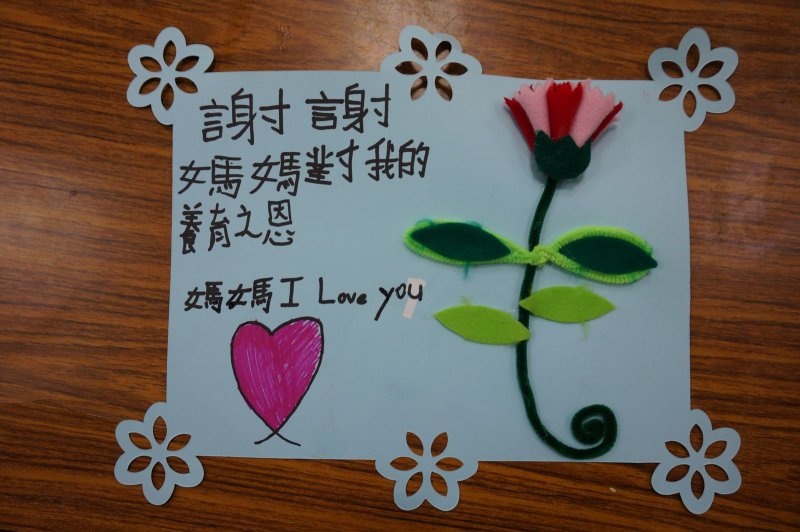 謝謝
媽媽對我的
養育之恩
媽媽 I Love you